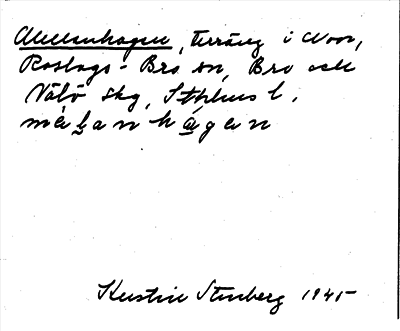 Mellanhagen, terräng i Noor,
Roslags-Bro sn, Bro och
Vätö skg, Sthlms l.
mälanhāgen
Kerstin Stenberg 1945